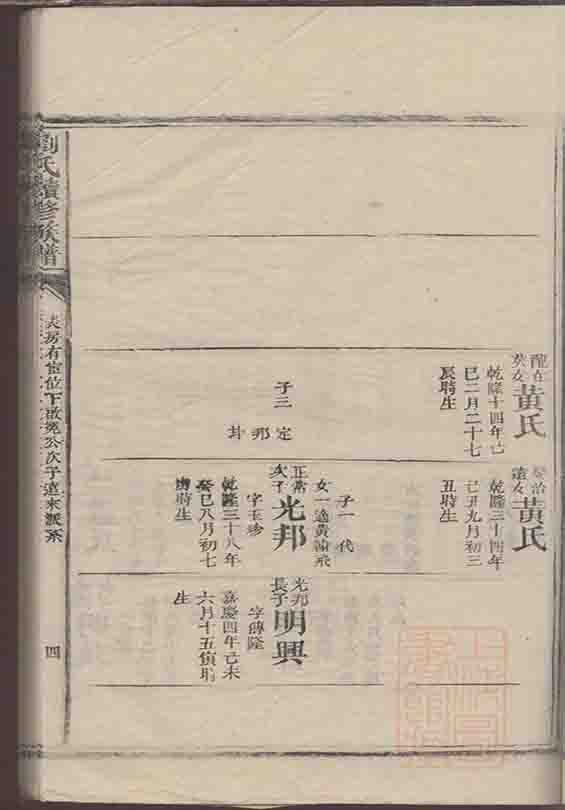 劉氏續修族譜
長房有宦位下啟冕公次子遠來派系
四
龍在
英女
黃氏
乾隆十四年己
巳二月二十七
辰時生
子三
定
邦
卦
榮治
遠女
黃氏
乾隆三十四年
己丑九月初三
丑時生
子一
代
女一適黃諭飛
正常
次子
光邦
字玉珍
乾隆三十八年
癸巳八月初七
時生
光邦
長子
明興
字傳隆
嘉慶四年己未
六月十五貞時
生